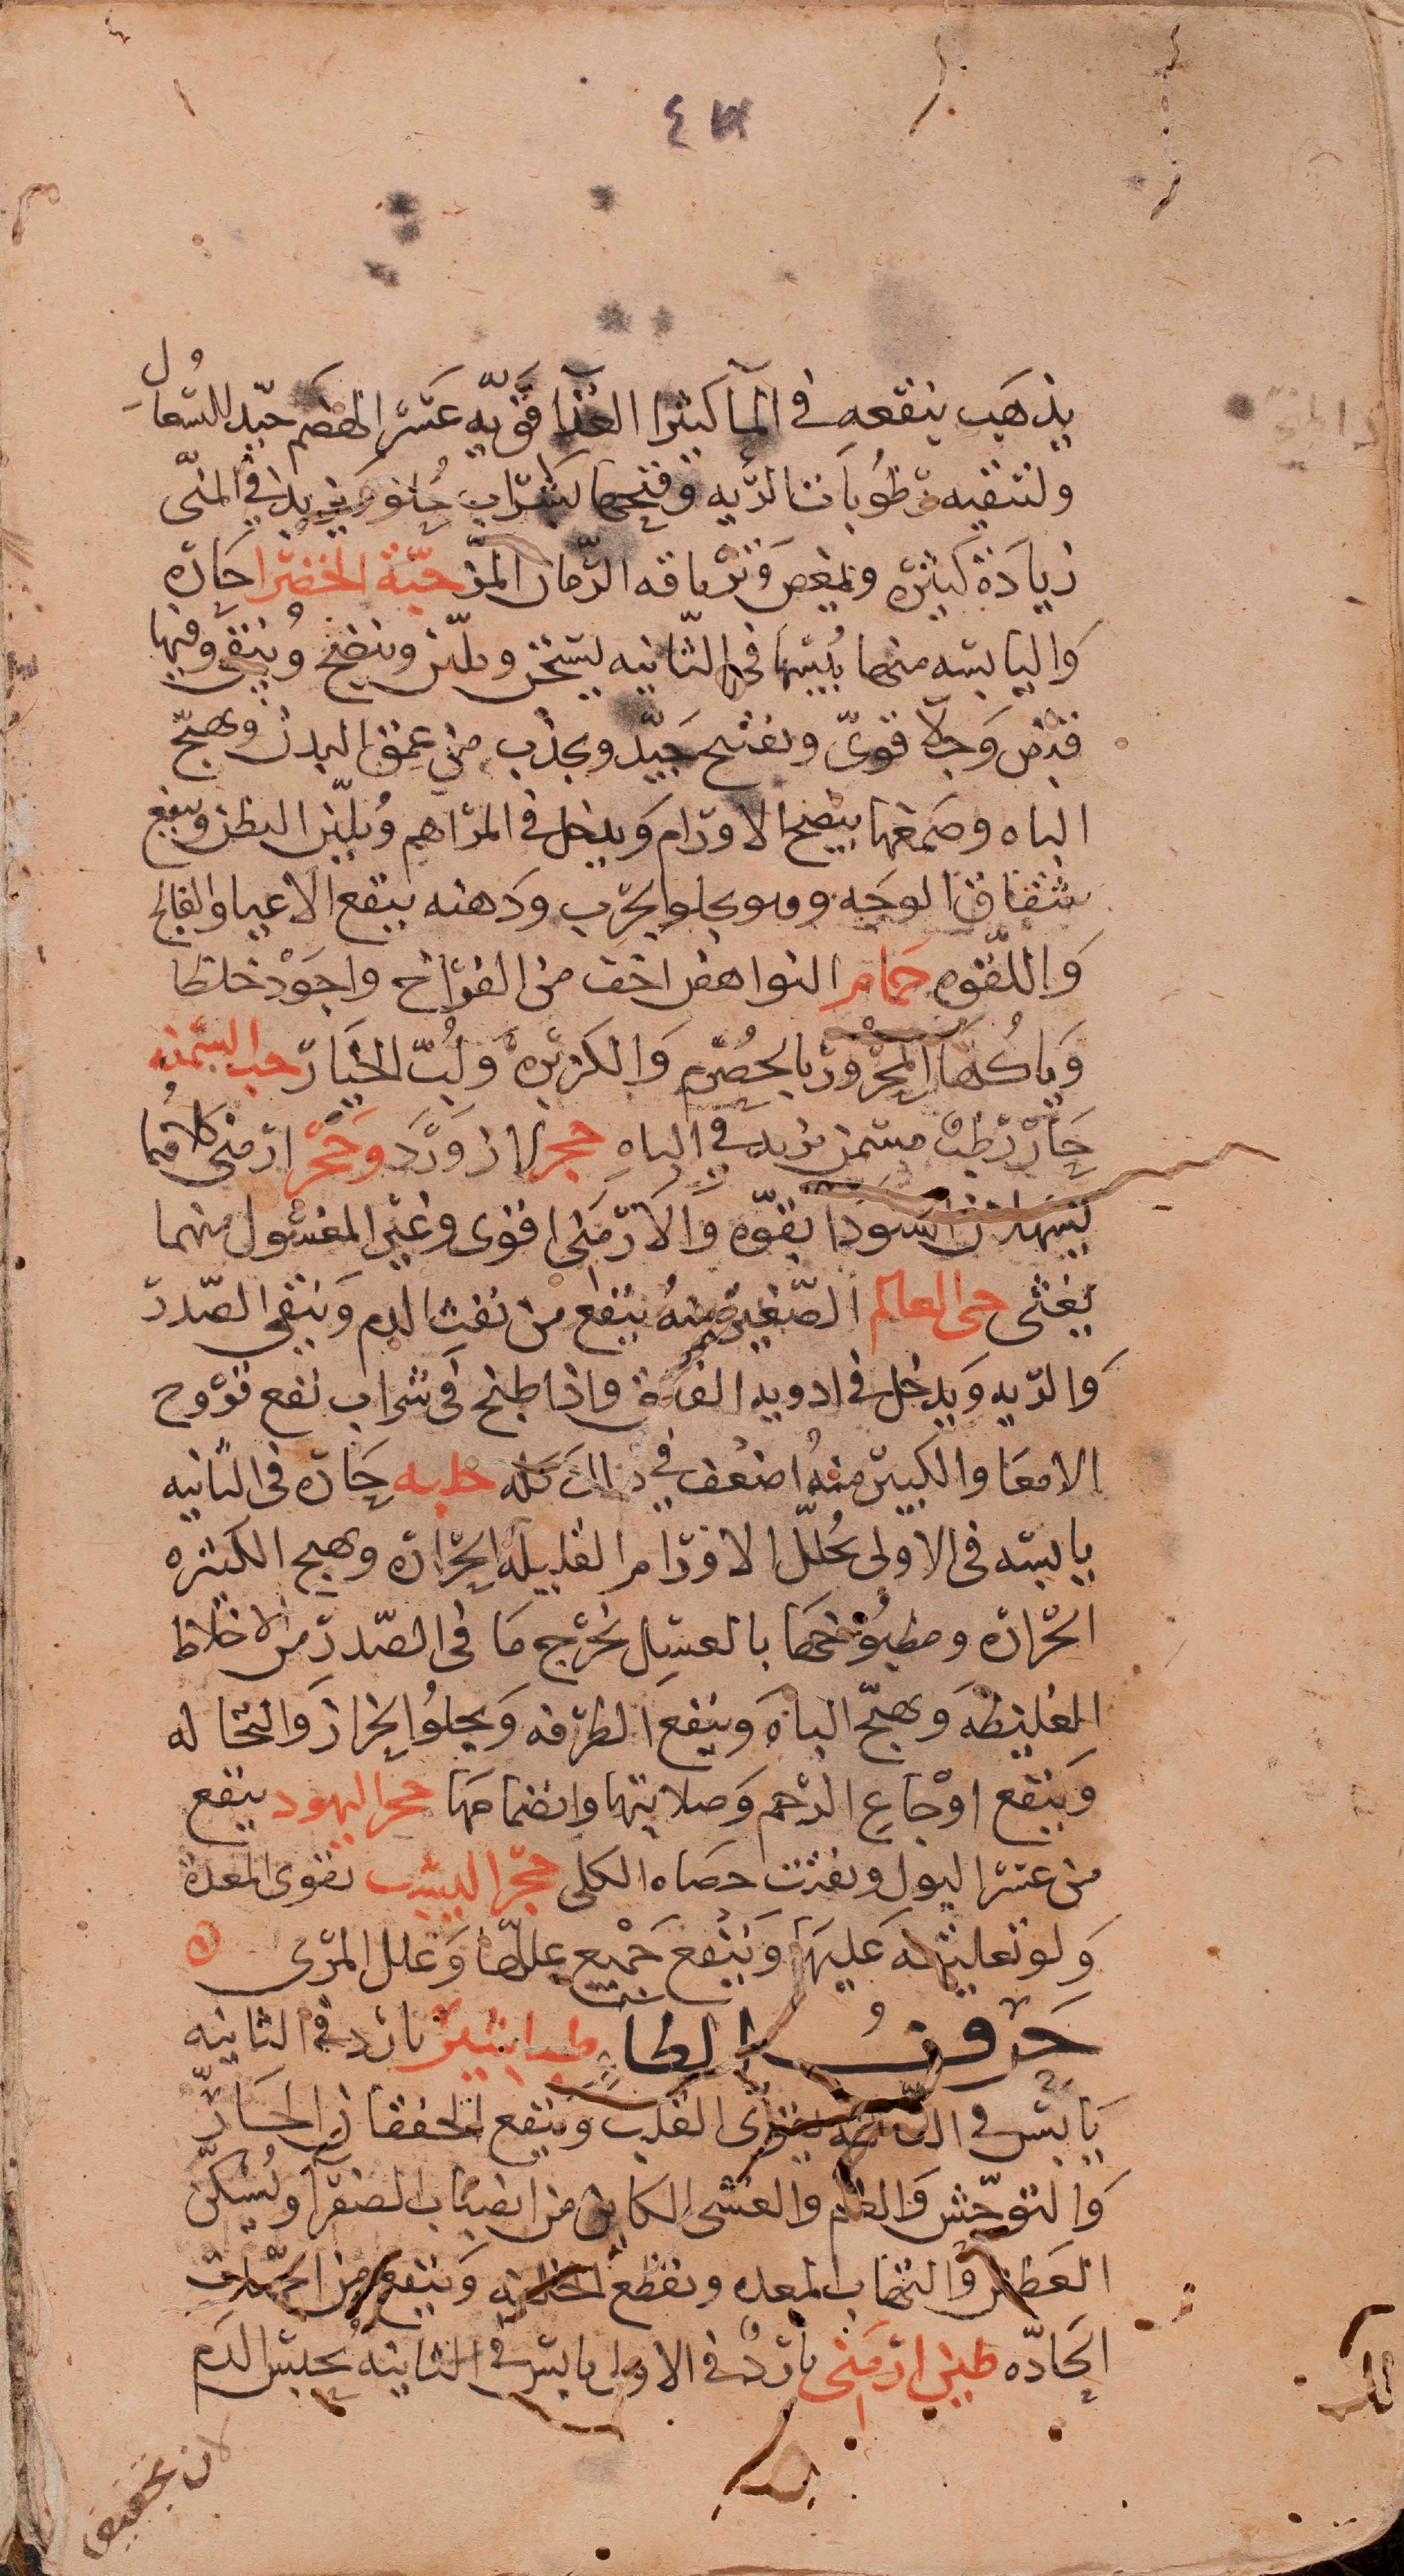 يذهب بنقعه في الما كثير الغذا قويه عسر الهضم جيد للسعال
ولتنقيه رطوبات الريه وفتحها كشراب حلو ويزيد في المنى
زيادة كثيره ويمغص وترياقه الرمان المز حبة الخضرا حاره
واليابسه منها يبسها في الثانيه يسخن ويلين وينضج وينقى وفيها
قبض وجلا قوى وتفتيح جيد ويجذب من عمق البدن ويهيج
الباه وصمغها ينضج الاورام ويدخل في المراهم ويلين البطن وينفع
شقاق الوجه ويجلو الجرب ودهنه ينفع الاعيا والفالج
واللقوه حمام النواهض اخف من الفراخ واجود خلطا
وياكلها المحرور بالحصرم والكزبره ولب الخيار حب السمنه
حار رطب مسمن يزيد في الباه حجر لازورد وحجر ارمنى كلاهما
يسهلان السودا بقوه والارمنى اقوى وغير المغسول منهما
يغثى حى العالم الصغير منه ينفع من نفث الدم وينقى الصدر
والريه ويدخل في ادويه واذا طبخ في شراب نفع قروح
الامعا والكبير منه اضعف في ذلك كله حلبه حاره في الثانيه
يابسه في الاولى يحلل الاورام القليلة الحراره ويهيج الكثيره
الحراره ومطبوخها بالعسل يخرج ما في الصدر من الاخلاط
الغليظه ويهيج الباه وينفع الطرفه ويجلوا الحزاز والنخاله
وينفع اوجاع الرحم وصلابتها وانضمامها حجر اليهود ينفع
من عسر البول ويفتت حصاه الكلى حجر اليشب يقوى المعدة
ولو تعليقه عليها وينفع جميع عللها وعلل المرى
حرف الطا طباشير بارد في الثانيه
يابس في الثالثه يقوى القلب وينفع الخفقان الحار
والتوحش والغم والغشى الكاين من انصباب الصفرا ويسكن
العطش والتهاب المعده ويقطع وينفع من الحميات
الحاده طين ارمنى بارد في الاولى يابس في الثانيه يحبس الدم
لان تجفيف